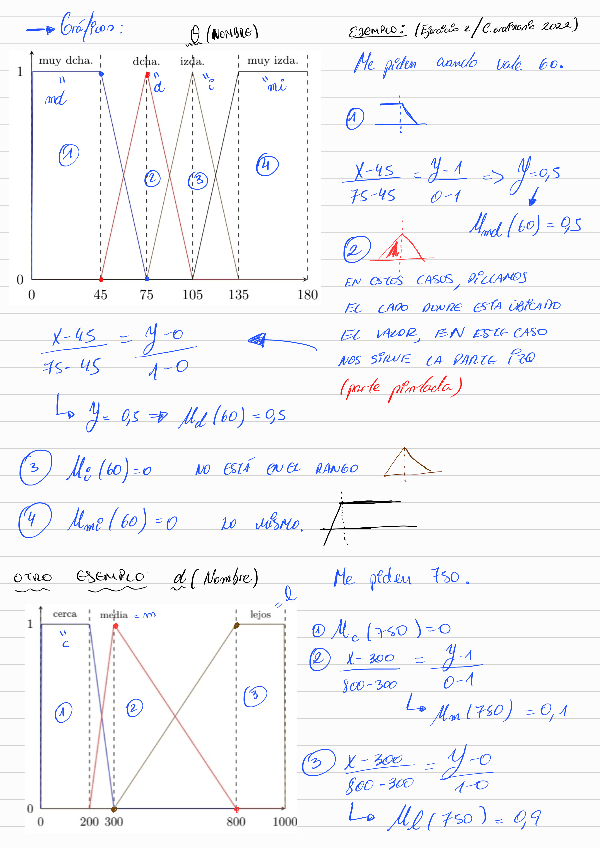 → Gráficos:
θ (NOMBRE)
muy dcha. dcha. izda. muy izda.
" md " d " i " mi
1
① ② ③ ④
0
0 45 75 105 135 180
EJEMPLO: (Ejercicio 2 / C. ordinaria 2022)
Me piden cuando vale 60.
①
x-45 / 75-45 = y-1 / 0-1 => y=0,5
↓
μmd (60) = 0,5
②
EN ESTOS CASOS, PILLAMOS
EL LADO DONDE ESTA UBICADO
EL VALOR, EN ESTE CASO
NOS SIRVE LA PARTE IZQ
(parte pintada)
x-45 / 75-45 = y-0 / 1-0
↳ y = 0,5 => μd (60) = 0,5
③ μi (60) = 0 NO ESTÁ EN EL RANGO
④ μmi (60) = 0 LO MISMO.
OTRO EJEMPLO: d (Nombre)
cerca media = m lejos = l
" c
1
① ② ③
0
0 200 300 800 1000
Me piden 750.
① μc (750) = 0
② x-300 / 800-300 = y-1 / 0-1
↳ μm (750) = 0,1
③ x-300 / 800-300 = y-0 / 1-0
↳ μl (750) = 0,9